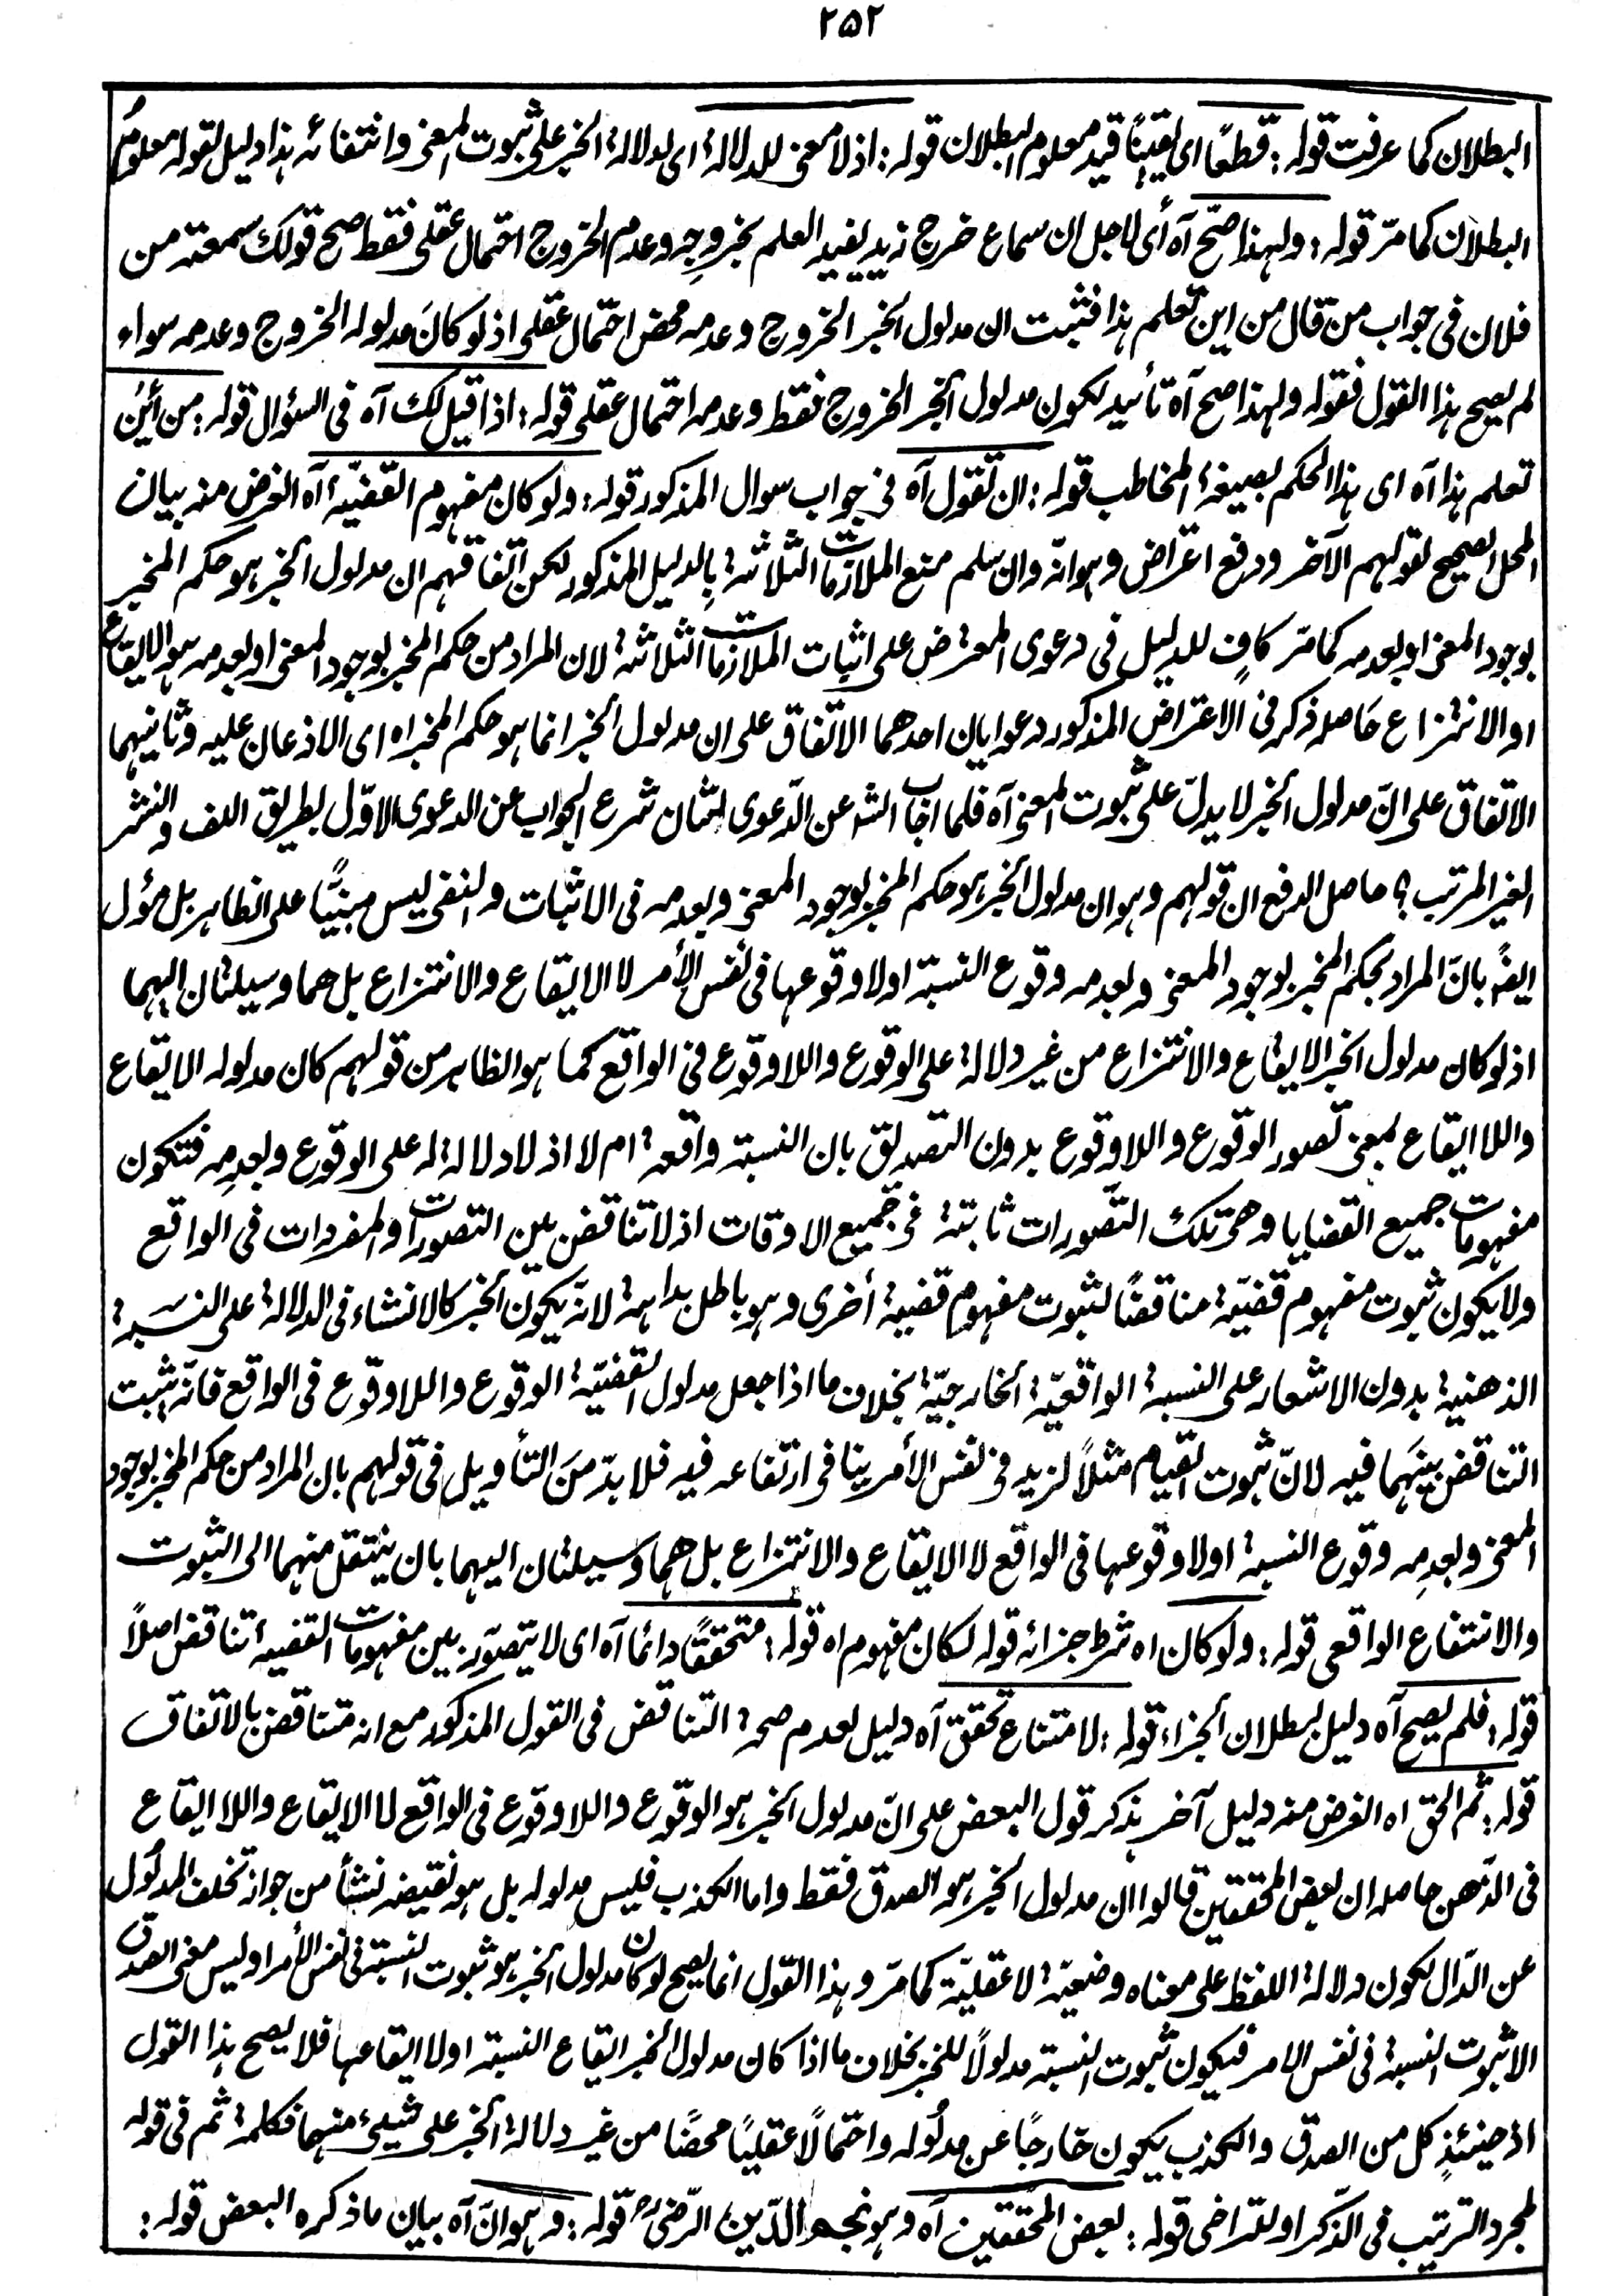 ٢٥٢
البطلان كما عرفت قوله: قطعًا اى يقينًا قيد معلوم البطلان قوله: اذ لا معنى للدلالة اى لدلالة الخبر على ثبوت المعنى وانتفائه هذا دليل لقوله معلوم
البطلان كما مرّ قوله: ولهذا صحّ آه أى لاجل ان سماع خرج زيد يفيد العلم بخروجِه وعدم الخروج احتمال عقلى فقط صح قولك سمعته من
فلان فى جواب من قال من اين تعلم هذا فثبت ان مدلول الخبر الخروج وعدمه محض احتمال عقلى اذ لو كانَ مدلوله الخروج وعدمه سواء
لم يصح هذا القول فقوله ولهذا صح آه تأئيد لكون مدلول الخبر الخروج فقط وعدمه احتمال عقلى قوله: اذا قيل لك آه فى السؤال قوله: من أينَ
تعلم هذا آه اى هذا الحكم بصيغة المخاطب قوله: ان تقول آه فى جواب سوال المذكور قوله: ولو كان مفهوم القضيّة آه الغرض منه بيان
المحل الصحيح لقولهم الآخر ودفع اعتراض وهو انّه وان سلم منع الملازمات الثلاثة بالدليل المذكور لكن اتفاقهم ان مدلول الخبر هو حكم المخبر
بوجود المعنى او بعدمه كما مرّ كافٍ للدليل فى دعوى المعترض على اثبات الملازمات الثلاثة لان المراد من حكم المخبر بوجود المعنى او بعدمه هو الايقاع
او الانتزاع حَاصله ذكر فى الاعتراض المذكور دعوايان احدهما الاتّفاق على ان مدلول الخبر انما هو حكم المخبر اه اى الاذعان عليه وثانيهما
الاتفاق على انّ مدلول الخبر لا يدلّ على ثبوت المعنى آه فلما اجاب الشـ عن الدّعوى الثان شرع الجواب عن الدعوى الاوّل بطريق اللف والنشر
الغير المرتب؟ حاصل الدفع ان قولهم وهو ان مدلول الخبر هو حكم المخبر بوجود المعنى وبعدمه فى الاثبات والنفى ليس مبنيًّا على الظاهر بل مؤل
ايضًا بانّ المراد بحكم المخبر بوجود المعنى وبعدمه وقوع النسبة اولا وقوعها فى نفس الأمر لا الايقاع والانتزاع بل هما وسيلتان اليهما
اذ لو كان مدلول الخبر الايقاع والانتزاع من غير دلالة على الوقوع واللاوقوع فى الواقع كما هو الظاهر من قولهم كان مدلوله الايقاع
واللا ايقاع بمعنى تصور الوقوع واللاوقوع بدون التصديق بان النسبة واقعة ام لا اذ لا دلالة له على الوقوع وبعدِمه فتكون
مفهومات جميع القضايا وهى تلك التّصورات ثابتة فى جميع الاوقات اذ لا تناقض بين التصورات والمفردات فى الواقع
ولا يكون ثبوت مفهوم قضيّة مناقضًا لثبوت مفهوم قضية أخرى وهو باطل بداهة لانّه يكون الخبر كالانشاء فى الدلالة على النسبة
الذهنية بدون الاشعار على النسبة الواقعيّة الخارجيّة بخلاف ما اذا جعل مدلول القضيّة الوقوع واللاوقوع فى الواقع فانّه يثبت
التناقض بينَهما فيه لانّ ثبوت القيام مثلاً لزيد فى نفس الأمر ينافى ارتفاعه فيه فلا بدّ منَ التأويل فى قولهم بان المراد من حكم المخبر بوجود
المعنى وبعدِمه وقوع النسبة اولا وقوعها فى الواقع لا الايقاع والانتزاع بل هما وسيلتان اليهما بان ينتقل منهما الى الثبوت
والانتفاع الواقعى قوله: ولو كان اه شرط جزائه قوله لكان مفهوم اه قوله: متحققًا دائما آه اى لا يتصّور بين مفهومات القضية اتناقض اصلاً
قوله: فلم يصح آه دليل لبطلان الجزاء قوله: لامتناع تحقق آه دليل لعدم صحة التناقض فى القول المذكور مع انه متناقض بالاتفاق
قوله: ثم الحق اه الغرض منه دليل آخر بذكر قول البعض على انّ مدلول الخبر هو الوقوع واللاوقوع فى الواقع لا الايقاع واللا ايقاع
فى الذّهن حاصله ان بعض المحققين قالوا ان مدلول الخبر هو الصدق فقط واما الكذب فليس مدلوله بل هو نقيضه نشأ من جواز تخلف المدلُول
عن الدّال لكون دلالة اللفظ على معناه وضعيّة لا عقليّة كما مرّ وهذا القول انما يصح لو كان مدلول الخبر هو ثبوت النسبة فى نفس الأمر او ليس معنى الصدق
الا ثبوت النسبة فى نفس الامر فيكون ثبوت النسبة مدلولاً للخبر بخلاف ما اذا كان مدلول الخبر ايقاع النسبة اولا ايقاعها فلا يصح هذا القول
اذ حينئذٍ كل من الصدق والكذب يكون خارجًا عن مدلُوله واحتمالًا عقليًا محضًا من غير دلالة الخبر على شيئ منهما فكلمة ثم فى قوله
لمجرد الترتيب فى الذّكر او للتراخى قوله: بعض المحققين آه وهو نجم الدّين الرّضىؒ قوله: وهو انّ آه بيان ما ذكره البعض قوله: